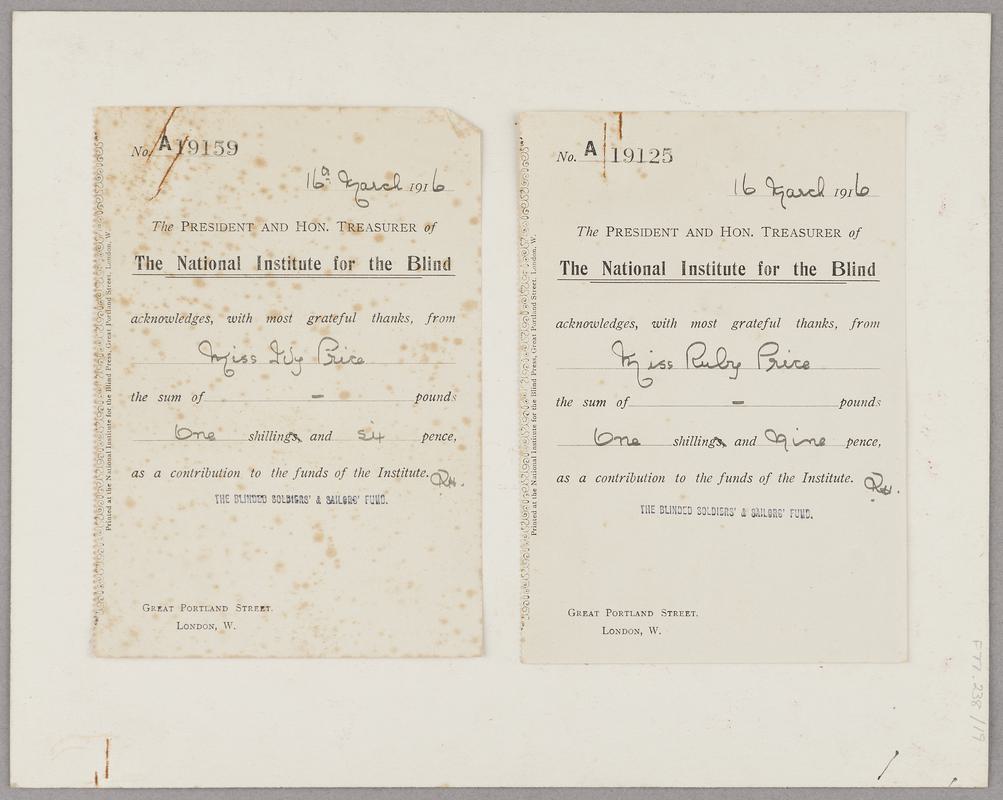 No. A 19159
16th March 1916
The PRESIDENT AND HON. TREASURER of
The National Institute for the Blind
acknowledges, with most grateful thanks, from
Miss Ivy Price
the sum of - pounds
One shillings, and six pence,
as a contribution to the funds of the Institute.
THE BLINDED SOLDIERS' & SAILORS' FUND.
GREAT PORTLAND STREET.
LONDON, W.
Printed at the National Institute for the Blind Press, Great Portland Street, London, W.
No. A 19125
16 March 1916
The PRESIDENT AND HON. TREASURER of
The National Institute for the Blind
acknowledges, with most grateful thanks, from
Miss Ruby Price
the sum of - pounds
One shillings, and Nine pence,
as a contribution to the funds of the Institute.
THE BLINDED SOLDIERS' & SAILORS' FUND.
GREAT PORTLAND STREET.
LONDON, W.
Printed at the National Institute for the Blind Press, Great Portland Street, London, W.
F77.238/19